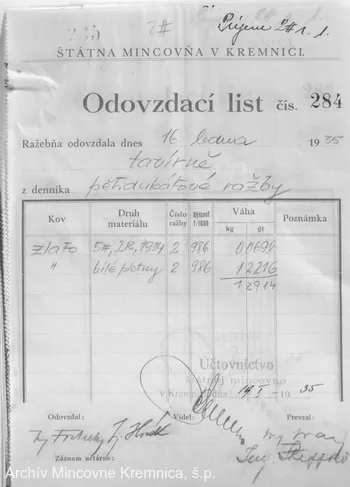 2#
Príjem 2# 1. 1.
ŠTÁTNA MINCOVŇA V KREMNICI.
Odovzdací list čís. 284
Ražebňa odovzdala dnes 16 ledna 1935
tavírně
z denníka pětidukátové ražby
Kov Druh materiálu Číslo ražby Rýdzosť 1/1000 Váha kg gr Poznámka
zlato 5#, ZR, 1934 2 986 0 0698
" bílé plotny 2 986 1 2216
1 2914
Účtovníctvo
štátnej mincovne
v Kremnici dňa 19/I 1935
Odovzdal: Videl: Prevzal:
Záznam účtárne:
Archív Mincovne Kremnica, š.p.